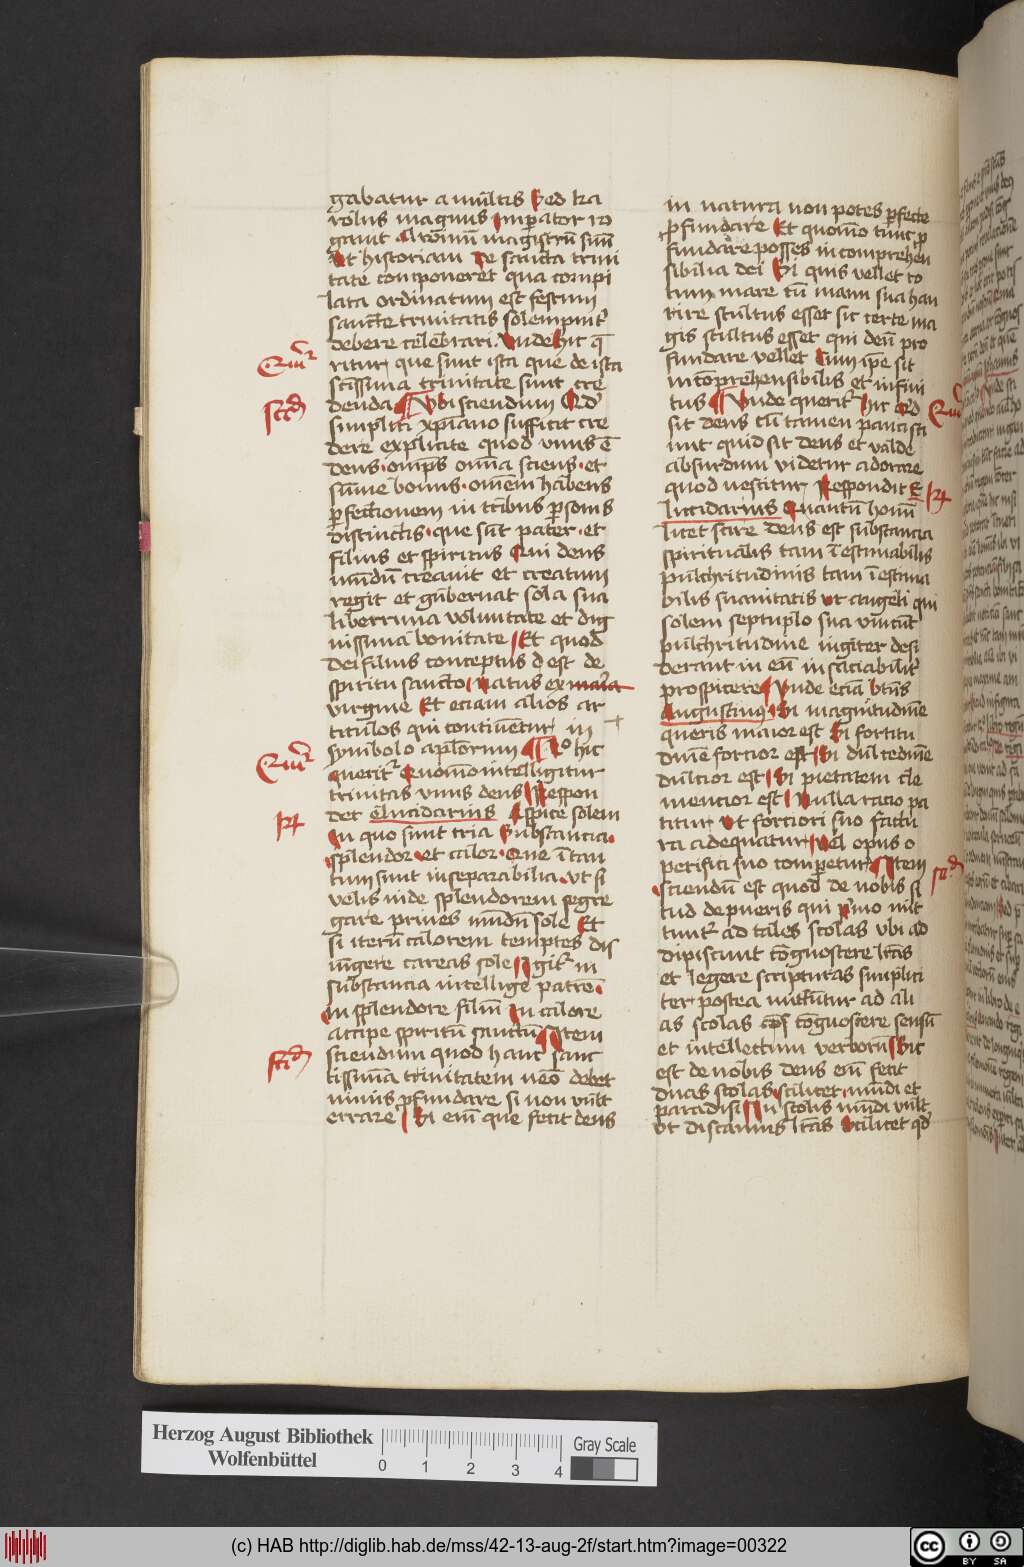 gabatur a multis Sed ka
rolus magnus imperator ro
gauit Alwinũ magistrũ suũ
Vt historiam de sancta trini
tate componeret qua compi
lata ordinatum est festum
sancte trinitatis solempnit᷑
debere celebrari. Vnde hic q̄
ritur que sunt ista que de ista
scĩssima trinitate sunt cre
denda Vbi sciendum Qd᷑
simplici xp̃iano sufficit cre
dere explicite quod vnus ẽ
deus · om̃ps om̃ia sciens · et
sũme bonus · om̃em habens
ꝑfectionem in tribus ꝑsonis
distinctis · que sũt pater · et
filius et spiritus Qui deus
mũdũ creauit et creatum
regit et gubernat sola sua
liberrima voluntate et dig
nissima bonitate Et quod
dei filius conceptus est de
spiritu sancto Natus ex maria
virgine Et eciam alios ar
ticulos qui continẽtur in
symbolo ap̃lorum hic
querit᷑ Quomõ intelligitur
trinitas vnus deus Respon
det elucidarius Aspice solem
In quo sunt tria Substancia
splendor · et calor · Que ĩ tan
tum sunt inseparabilia · vt si
velis inde splendorem segre
gare priues mũdũ sole Et
si iterũ calorem temptes dis
iũgere careas sole Igit᷑ in
substancia intellige patrẽ
In splendore filiũ In calore
accipe spiritũ sanctũ Item
sciendum quod hanc sanc
tissimã trinitatem nemo debet
nimis ꝓfundare si non vult
errare Si eim que fecit deus
in natura non potes ꝑfecte
ꝓfundare Et quomõ tunc ꝓ
fundare posses incomprehen
sibilia dei Si quis vellet to
tum mare cũ manu sua hau
rire stultus esset sic certe ma
gis stultus esset qui deũ pro
fundare vellet Cum ip̃e sit
incõprehensibilis et infini
tus Vnde querit᷑ hic Qd
sit deus cũ tamen pauci sci
unt quid sit deus et valde
absurdum videtur adorare
quod nescitur Respondit E
lucidarius Quantũ homĩ
licet scire Deus est substancia
spiritualis tam ĩestimabilis
pulchritudinis tam ĩestima
bilis suauitatis vt angeli qui
solem septuplo sua vincũt
pulchritudine iugiter desi
derant in eũ insaciabilit᷑
prospicere Vnde eciã btũs
Augustinus Si magnitudinẽ
queris maior est Si fortitu
dinẽ fortior est Si dulcedinẽ
dulcior est Si pietatem cle
mencior est Nulla racio pa
titur Vt forciori suo factu
ra adequatur Vel opus o
perifici suo competur Item
sciendũ est quod de nobis si
cud de pueris qui ṗmo mit
tunt᷑ ad tales scolas vbi ad
dipiscunt cõgnoscere lr̃as
et legere scripturas simplici
ter postea mittũtur ad ali
as scolas cognoscere sensũ
et intellectum verborũ Sic
est de nobis deus eim fecit
duas scolas · scilicet · mũdi et
paradisi In scolis mũdi vult
vt discamus lr̃as Scilicet qd᷑
Herzog August Bibliothek
Wolfenbüttel
0 1 2 3 4
Gray Scale
(c) HAB http://diglib.hab.de/mss/42-13-aug-2f/start.htm?image=00322
cc BY SA